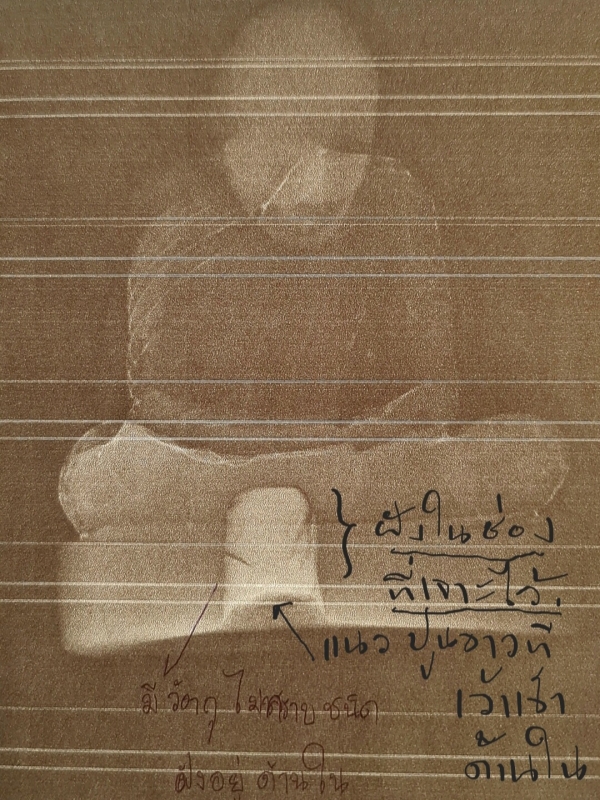 ฝังในช่อง
ที่เจาะไว้
แนวปูนยาวที่
เว้าเข้า
ด้านใน
มีวัตถุไม่ทราบชนิด
ฝังอยู่ด้านใน